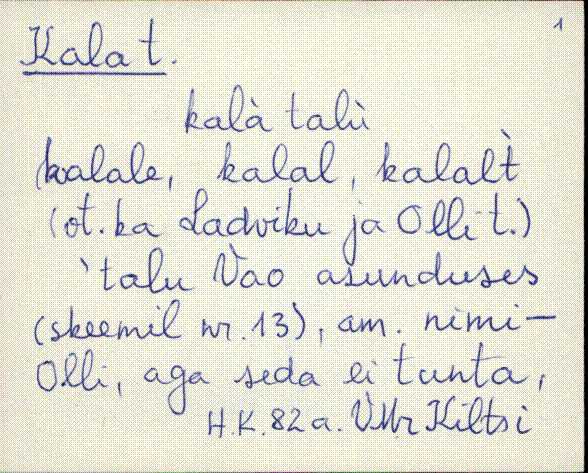 1
Kala t.
kalà talù
kalale, kalal, kalalt̀
(ot. ka Ladviku ja Olli t.)
`talu Vao asunduses
(skeemil nr. 13), am. nimi—
Olli, aga seda ei tunta,
H.K. 82 a. VMr Kiltsi